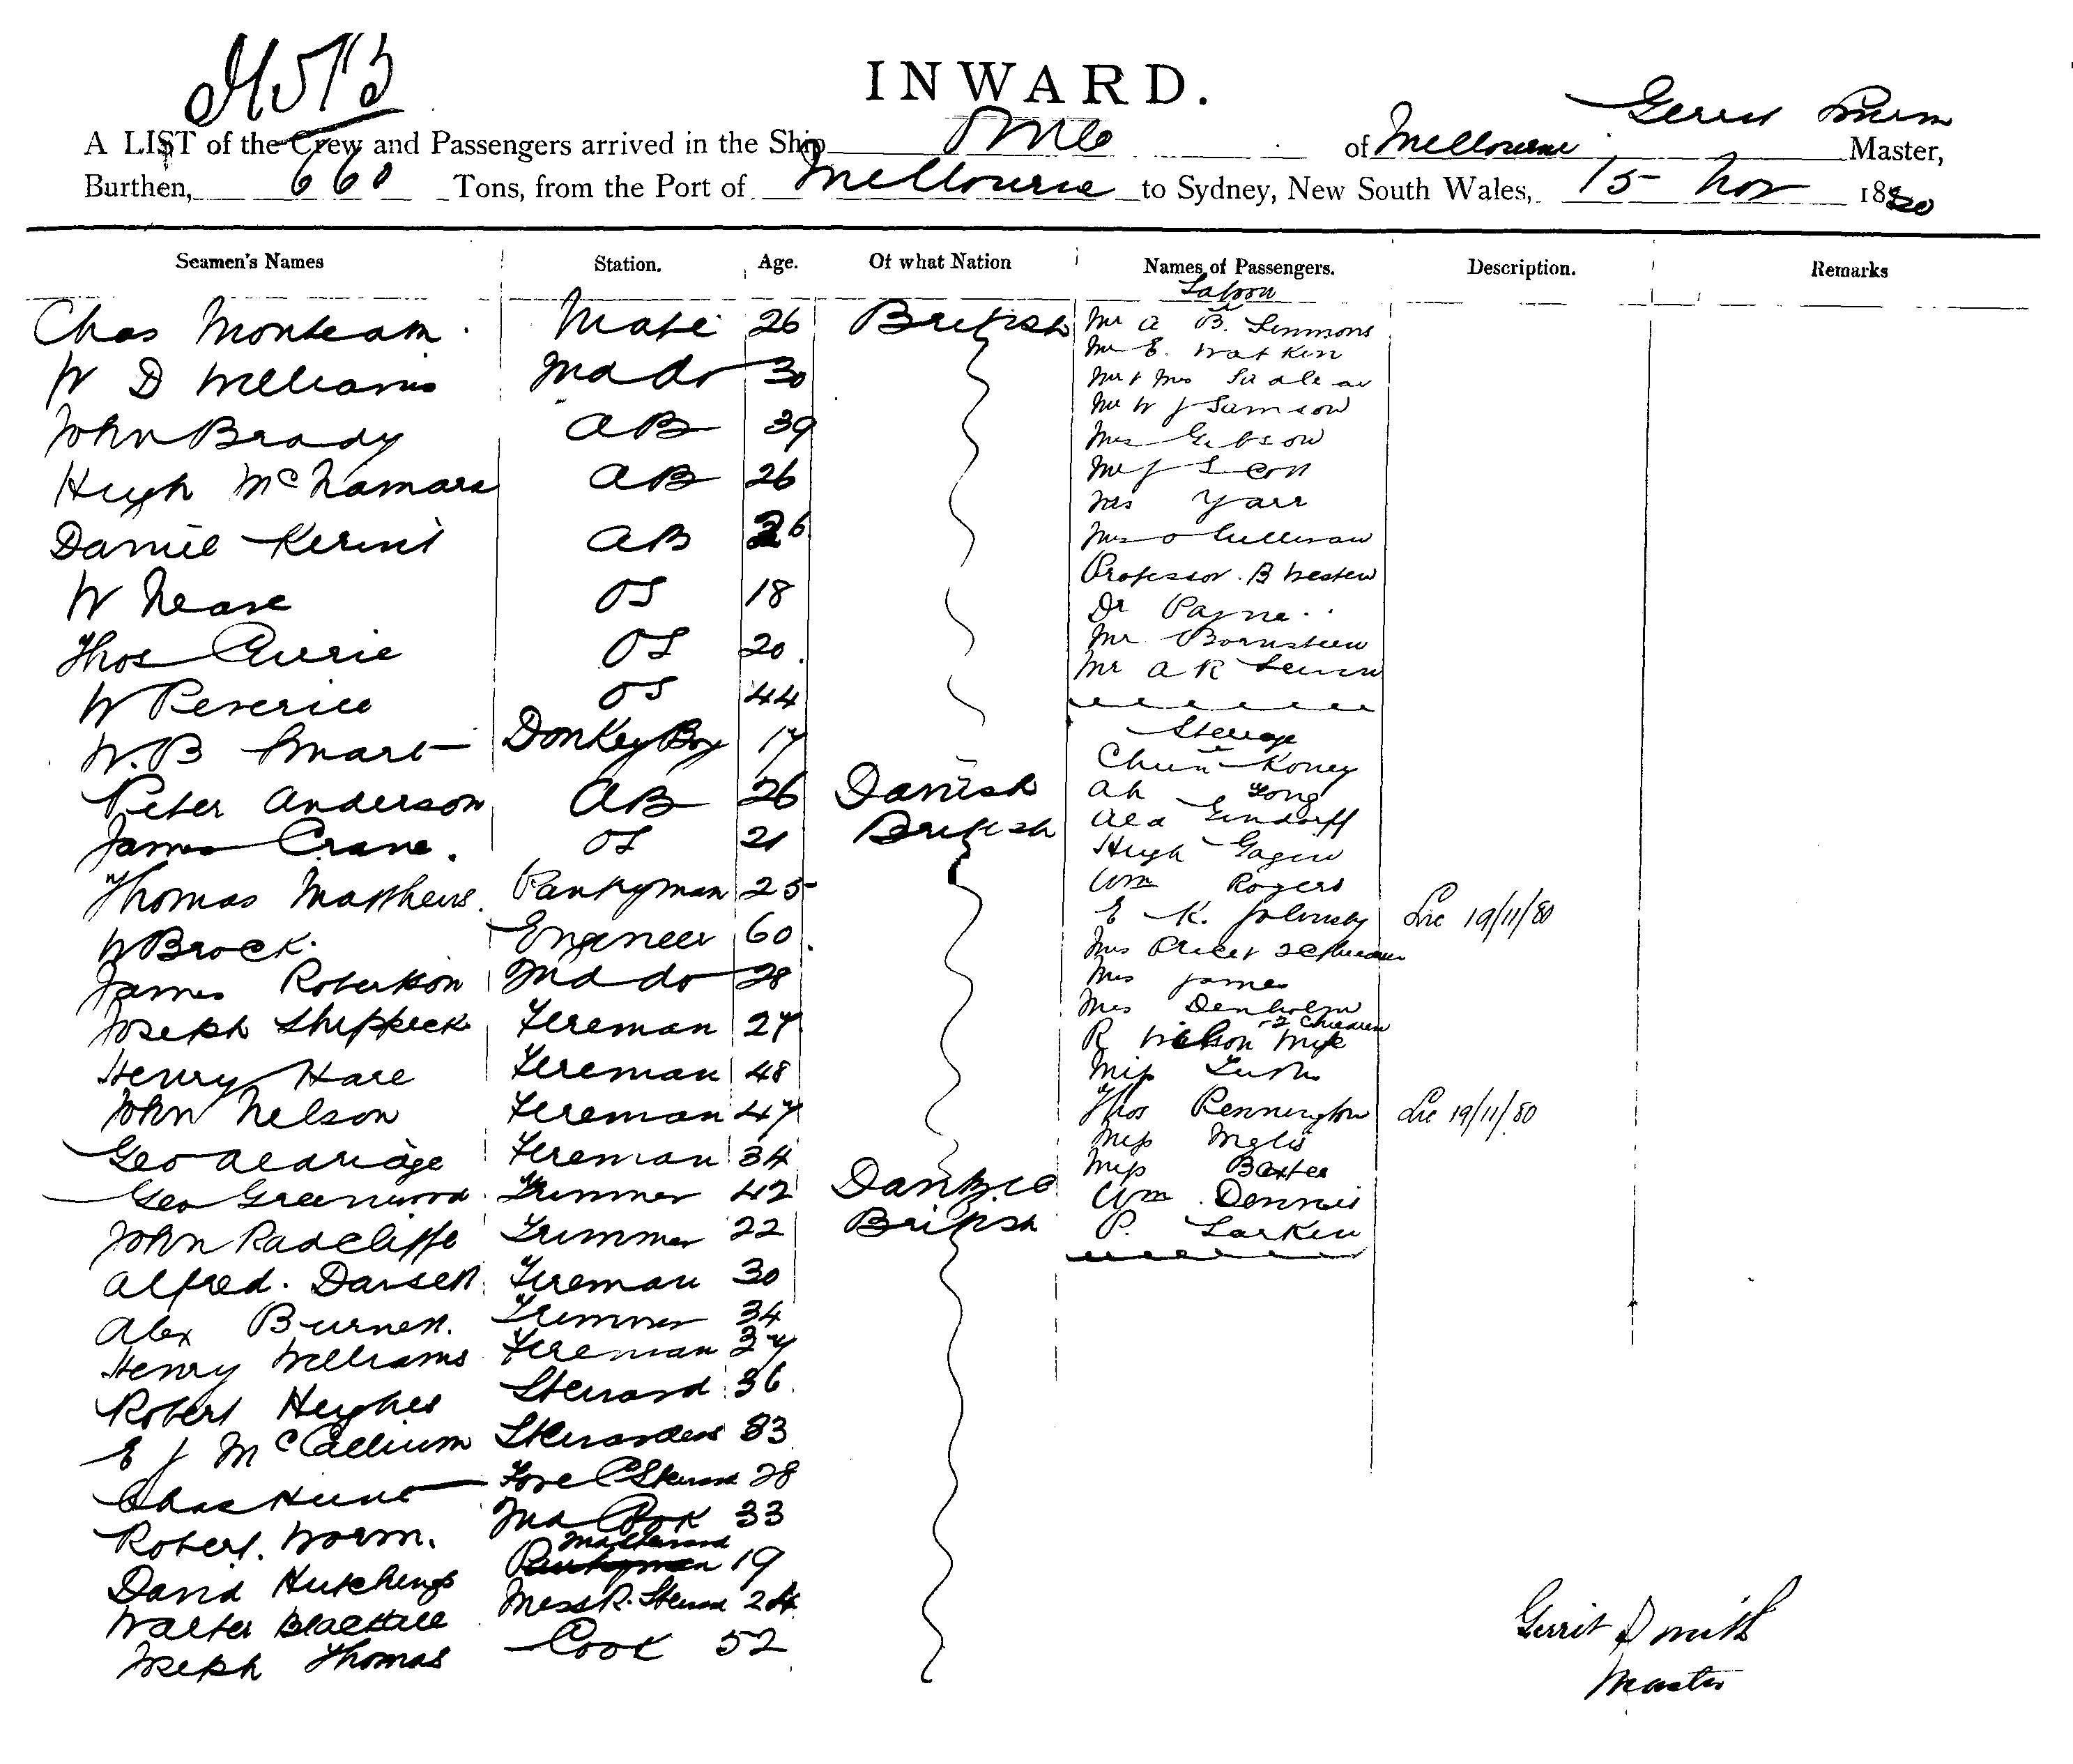 INWARD.
A LIST of the Crew and Passengers arrived in the Ship of Melbourne Master,
Burthen, 660 Tons, from the Port of Melbourne to Sydney, New South Wales, 15 Nov 1880
Seamen's Names Station. Age. Of what Nation Names of Passengers. Description. Remarks
Saloon
Chas Monteam Mate 26 British Mr A B. Simmons
Mr E. Watkin
W D Williams 2nd do 30 Mr & Mrs
Mr W J Samson
John Brady AB 39 Mrs Gibson
Hugh McNamara AB 26 Mr J Scott
Mrs Yarr
Daniel Kerins AB 26 Mrs O Sullivan
Professor B
W Neave OS 18 Dr Payne
Thos Currie OS 20 Mr Bornstein
Mr A R
W OS 44
Steerage
W. B Smart Donkey Boy 17 Chun Koney
Peter Anderson AB 26 Danish Ah Fong
James Crane. OS 21 British Alex
Hugh
Thomas Matthews Pantryman 25 Wm Rogers
E K. Lic 19/11/80
W Brock. Engineer 60 Mrs 2 Children
James Robertson 2nd do 28 Mrs James
Mrs Denholm
2 Children
Joseph Sheppeck Fireman 27 R Wilson Wife
Henry Hare Fireman 48 Miss
John Nelson Fireman 47 Thos Pennington Lic 19/11/80
Miss Inglis
Geo Aldridge Fireman 34 Miss Baxter
Geo Greenwood Trimmer 42 Wm Dennis
John Radcliffe Trimmer 22 British P. Larkin
Alfred. Fireman 30
Alex Burnett. Trimmer 34
Henry Williams Fireman 37
Robert Hughes Steward 36
E J McCallium Stewardess 33
Chas Fore C Steward 28
Robert. Worm. 2nd Cook 33
2nd Steward
David Hutchings Pantryman 19
Walter Blackall Mess R. Steward 24
Joseph Thomas Cook 52
Gerrit Smith
Master